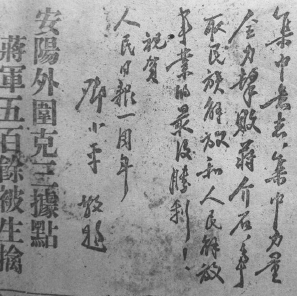 集中意志,集中力量
全力擊敗蔣介石,爭
取民族解放和人民解放
事業的最後勝利!
祝賀
人民日報一周年
鄧小平 敬題
安陽外圍克三據點
蔣軍五百餘被生擒